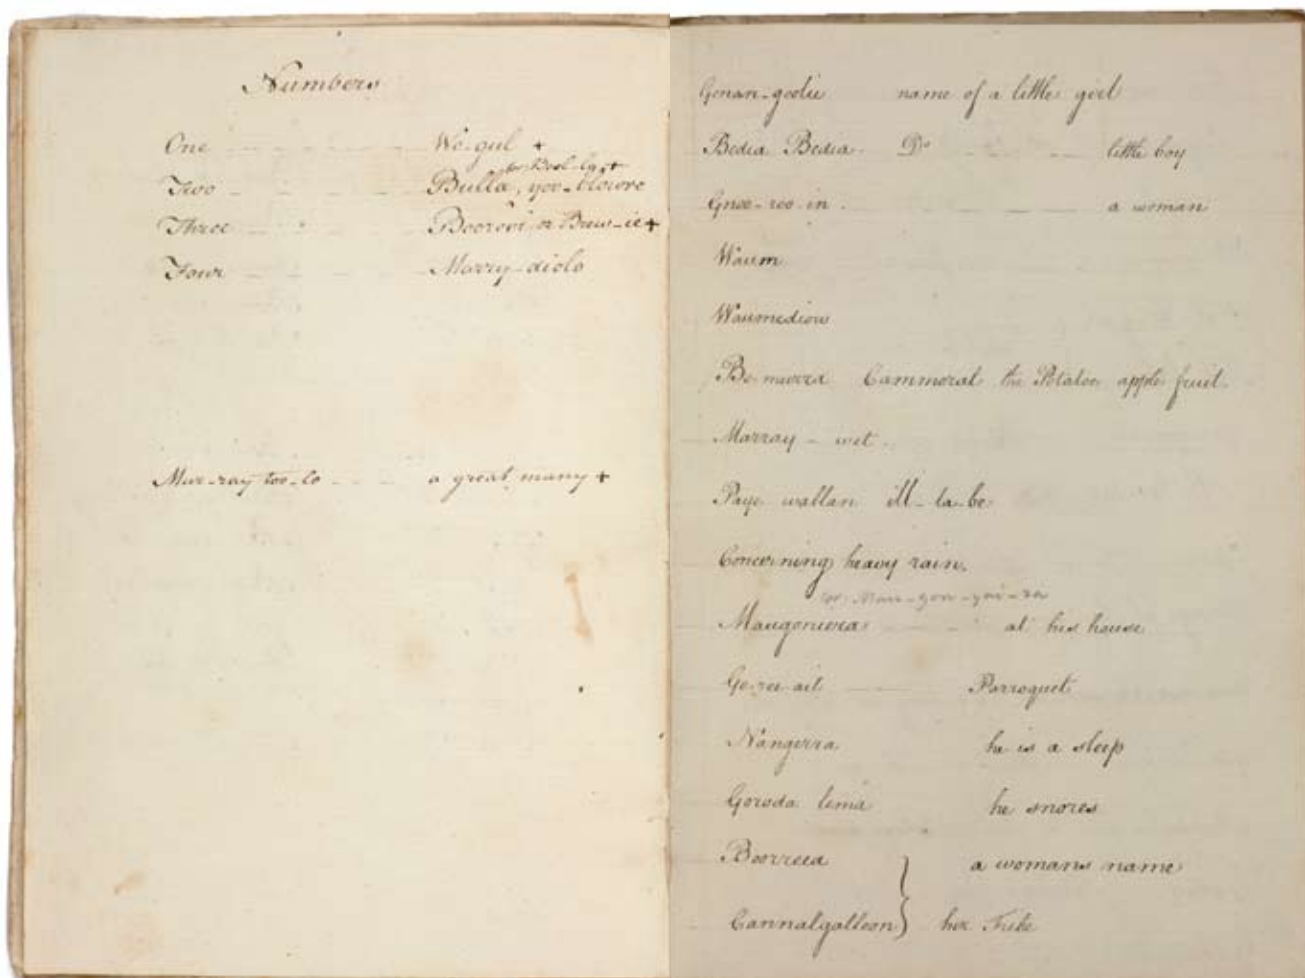 Numbers
One Wo-gul +
or Bool-la +
Two Bulla, yoo-blowre
Three Boorooi or Brew-ie +
Four Marry-diolo
Mur-ray too-lo a great many +
Gonan-goolie name of a little girl
Bedia Bedia. Do little boy
Gnoo-roo-in. a woman
Waum
Waumediou
Bo-murra Cammoral the Potatoe apple fruit.
Marray - wet.
Paye wallan ill-ta-be
Concerning heavy rain.
or Mau-gon-yai-ra
Maugoniera at his house
Go-ree-ait Parroquet
Nangerra he is a sleep
Goroda lema he snores
Boorreea } a womans name
Cannalgalleon } her Tribe